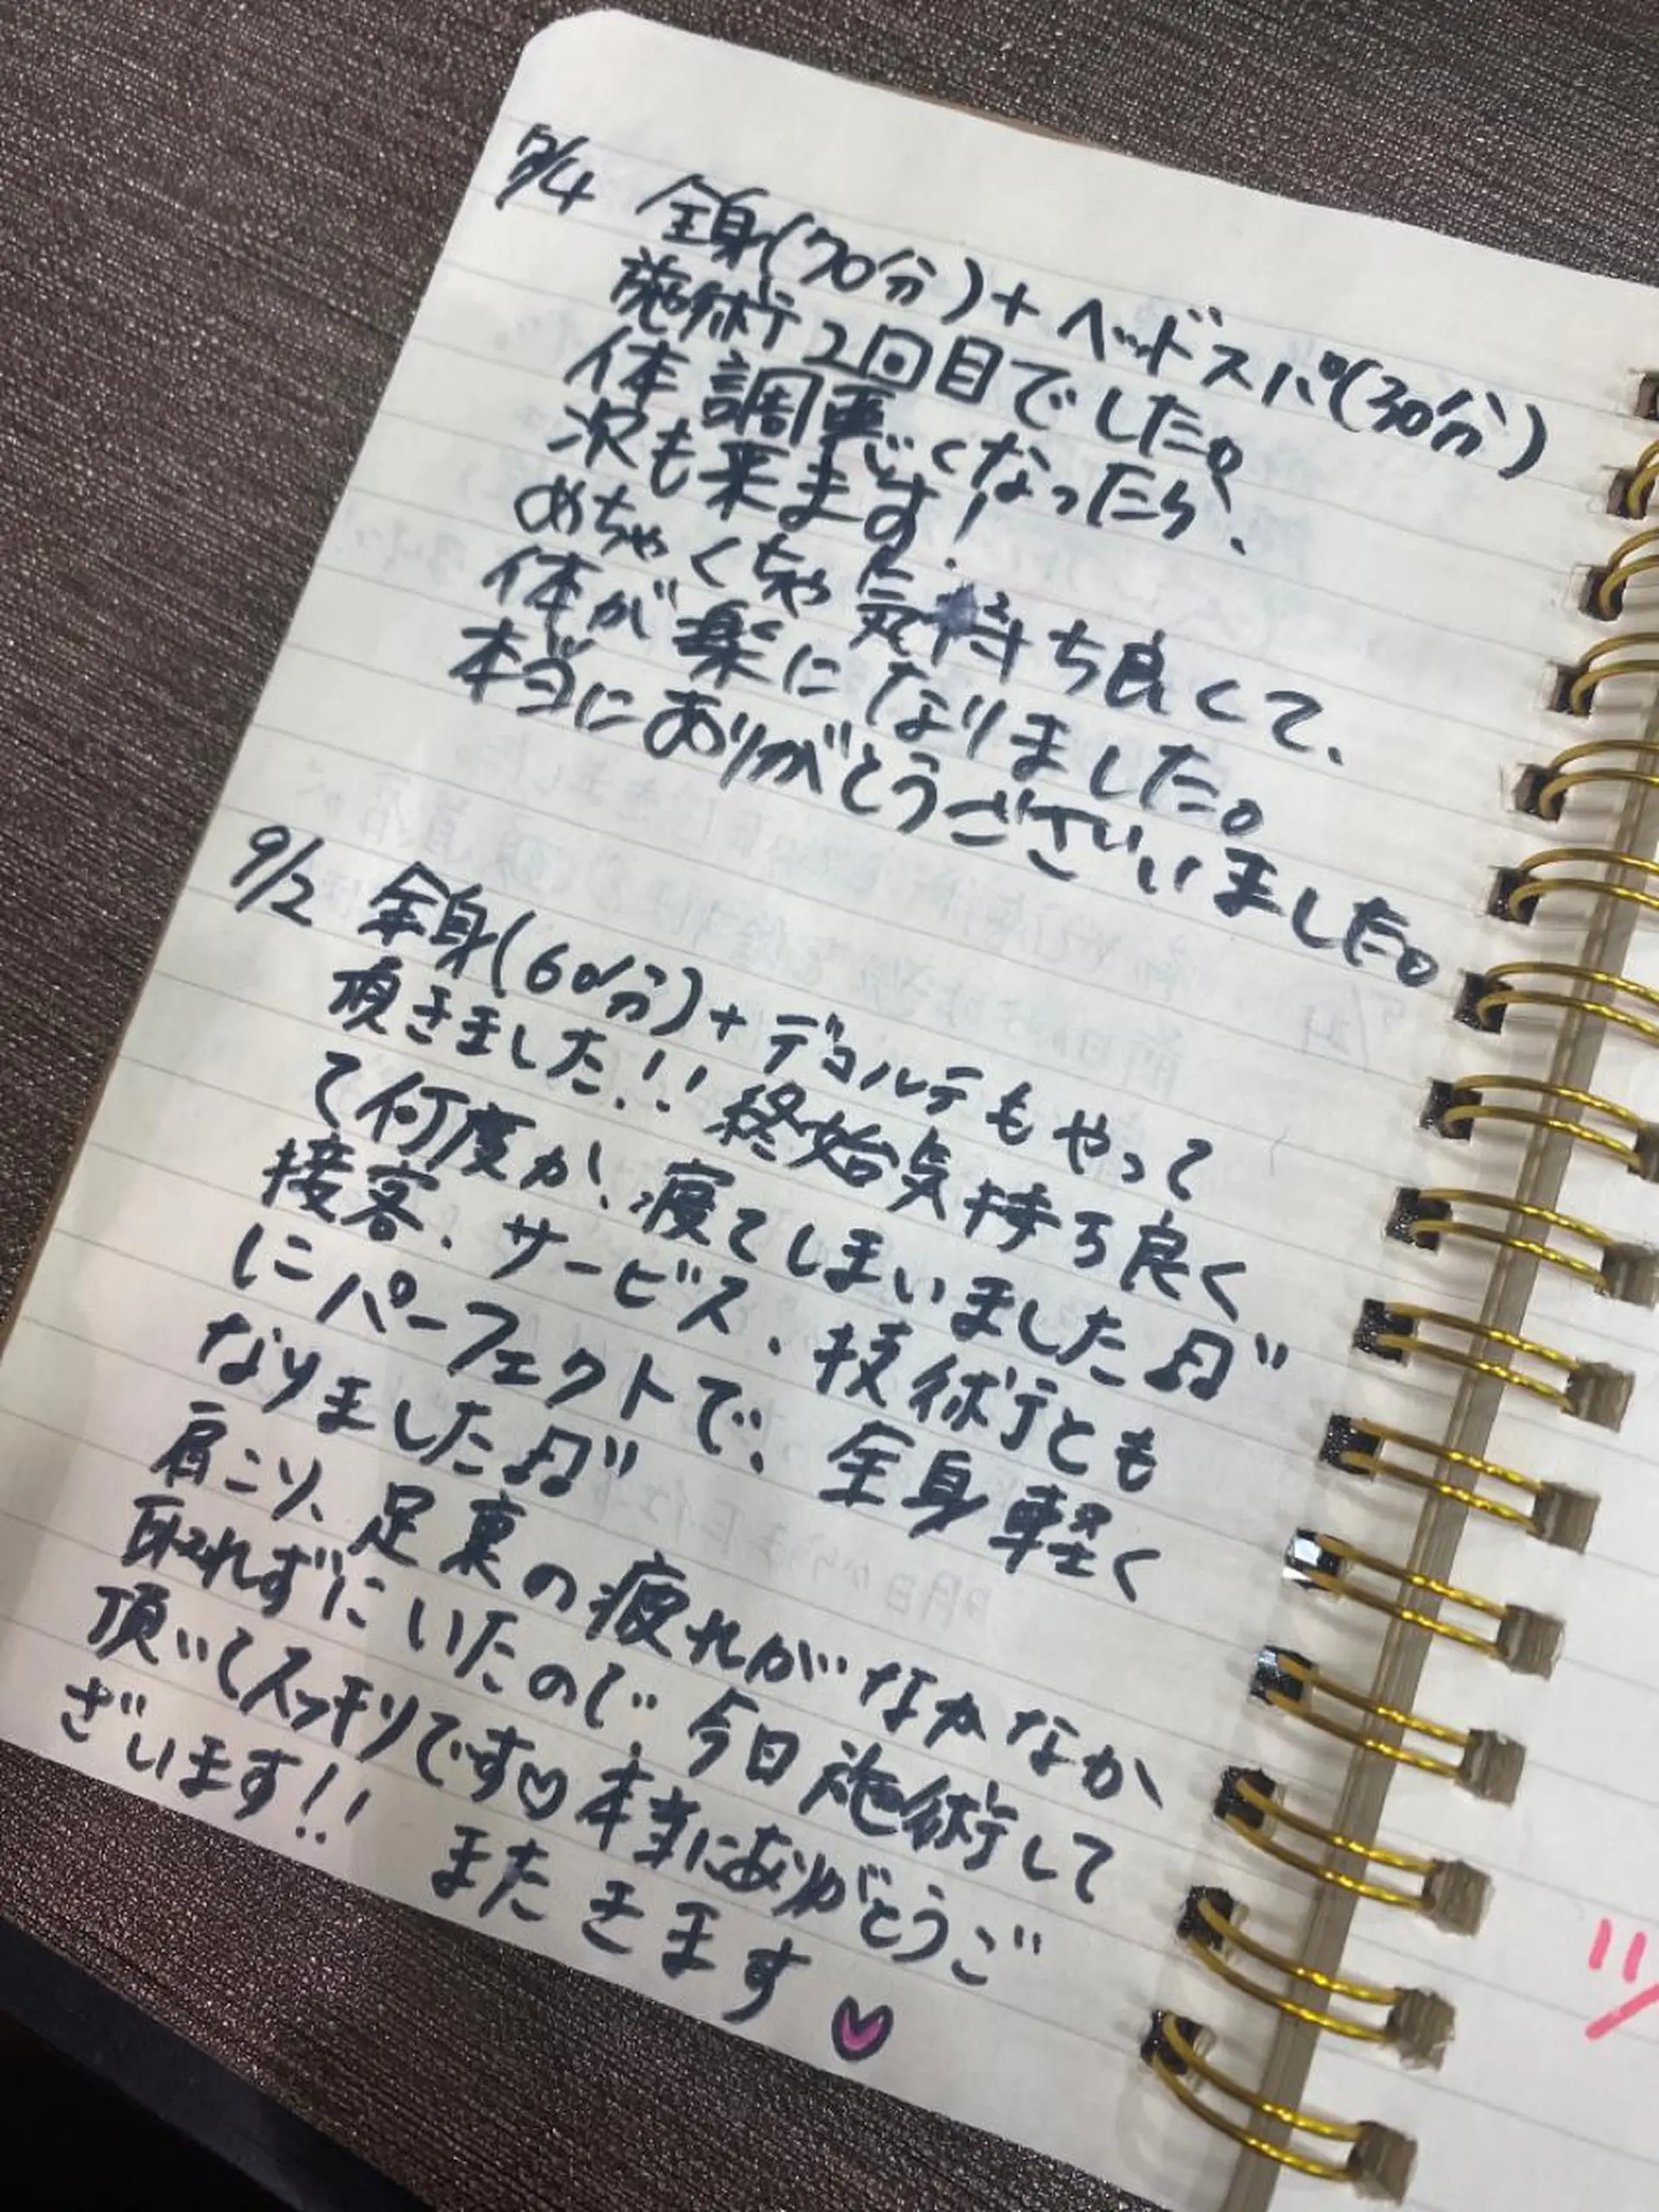 全身(70分)+ヘッドスパ(30分)
施術2回目でした。
体調悪くなったら、
次も来ます!
めちゃくちゃ気持ち良くて、
体が楽になりました。
本当にありがとうございました。
9/2 全身(60分)+デコルテもやって
頂きました!! 終始気持ち良く
て何度か、寝てしまいました♫"
接客、サービス、技術とも
にパーフェクトで、全身軽く
なりました♫"
肩こり、足裏の疲れがなかなか
取れずにいたので、今日施術して
頂いてスッキリです♡本当にありがとうご
ざいます!! またきます♡